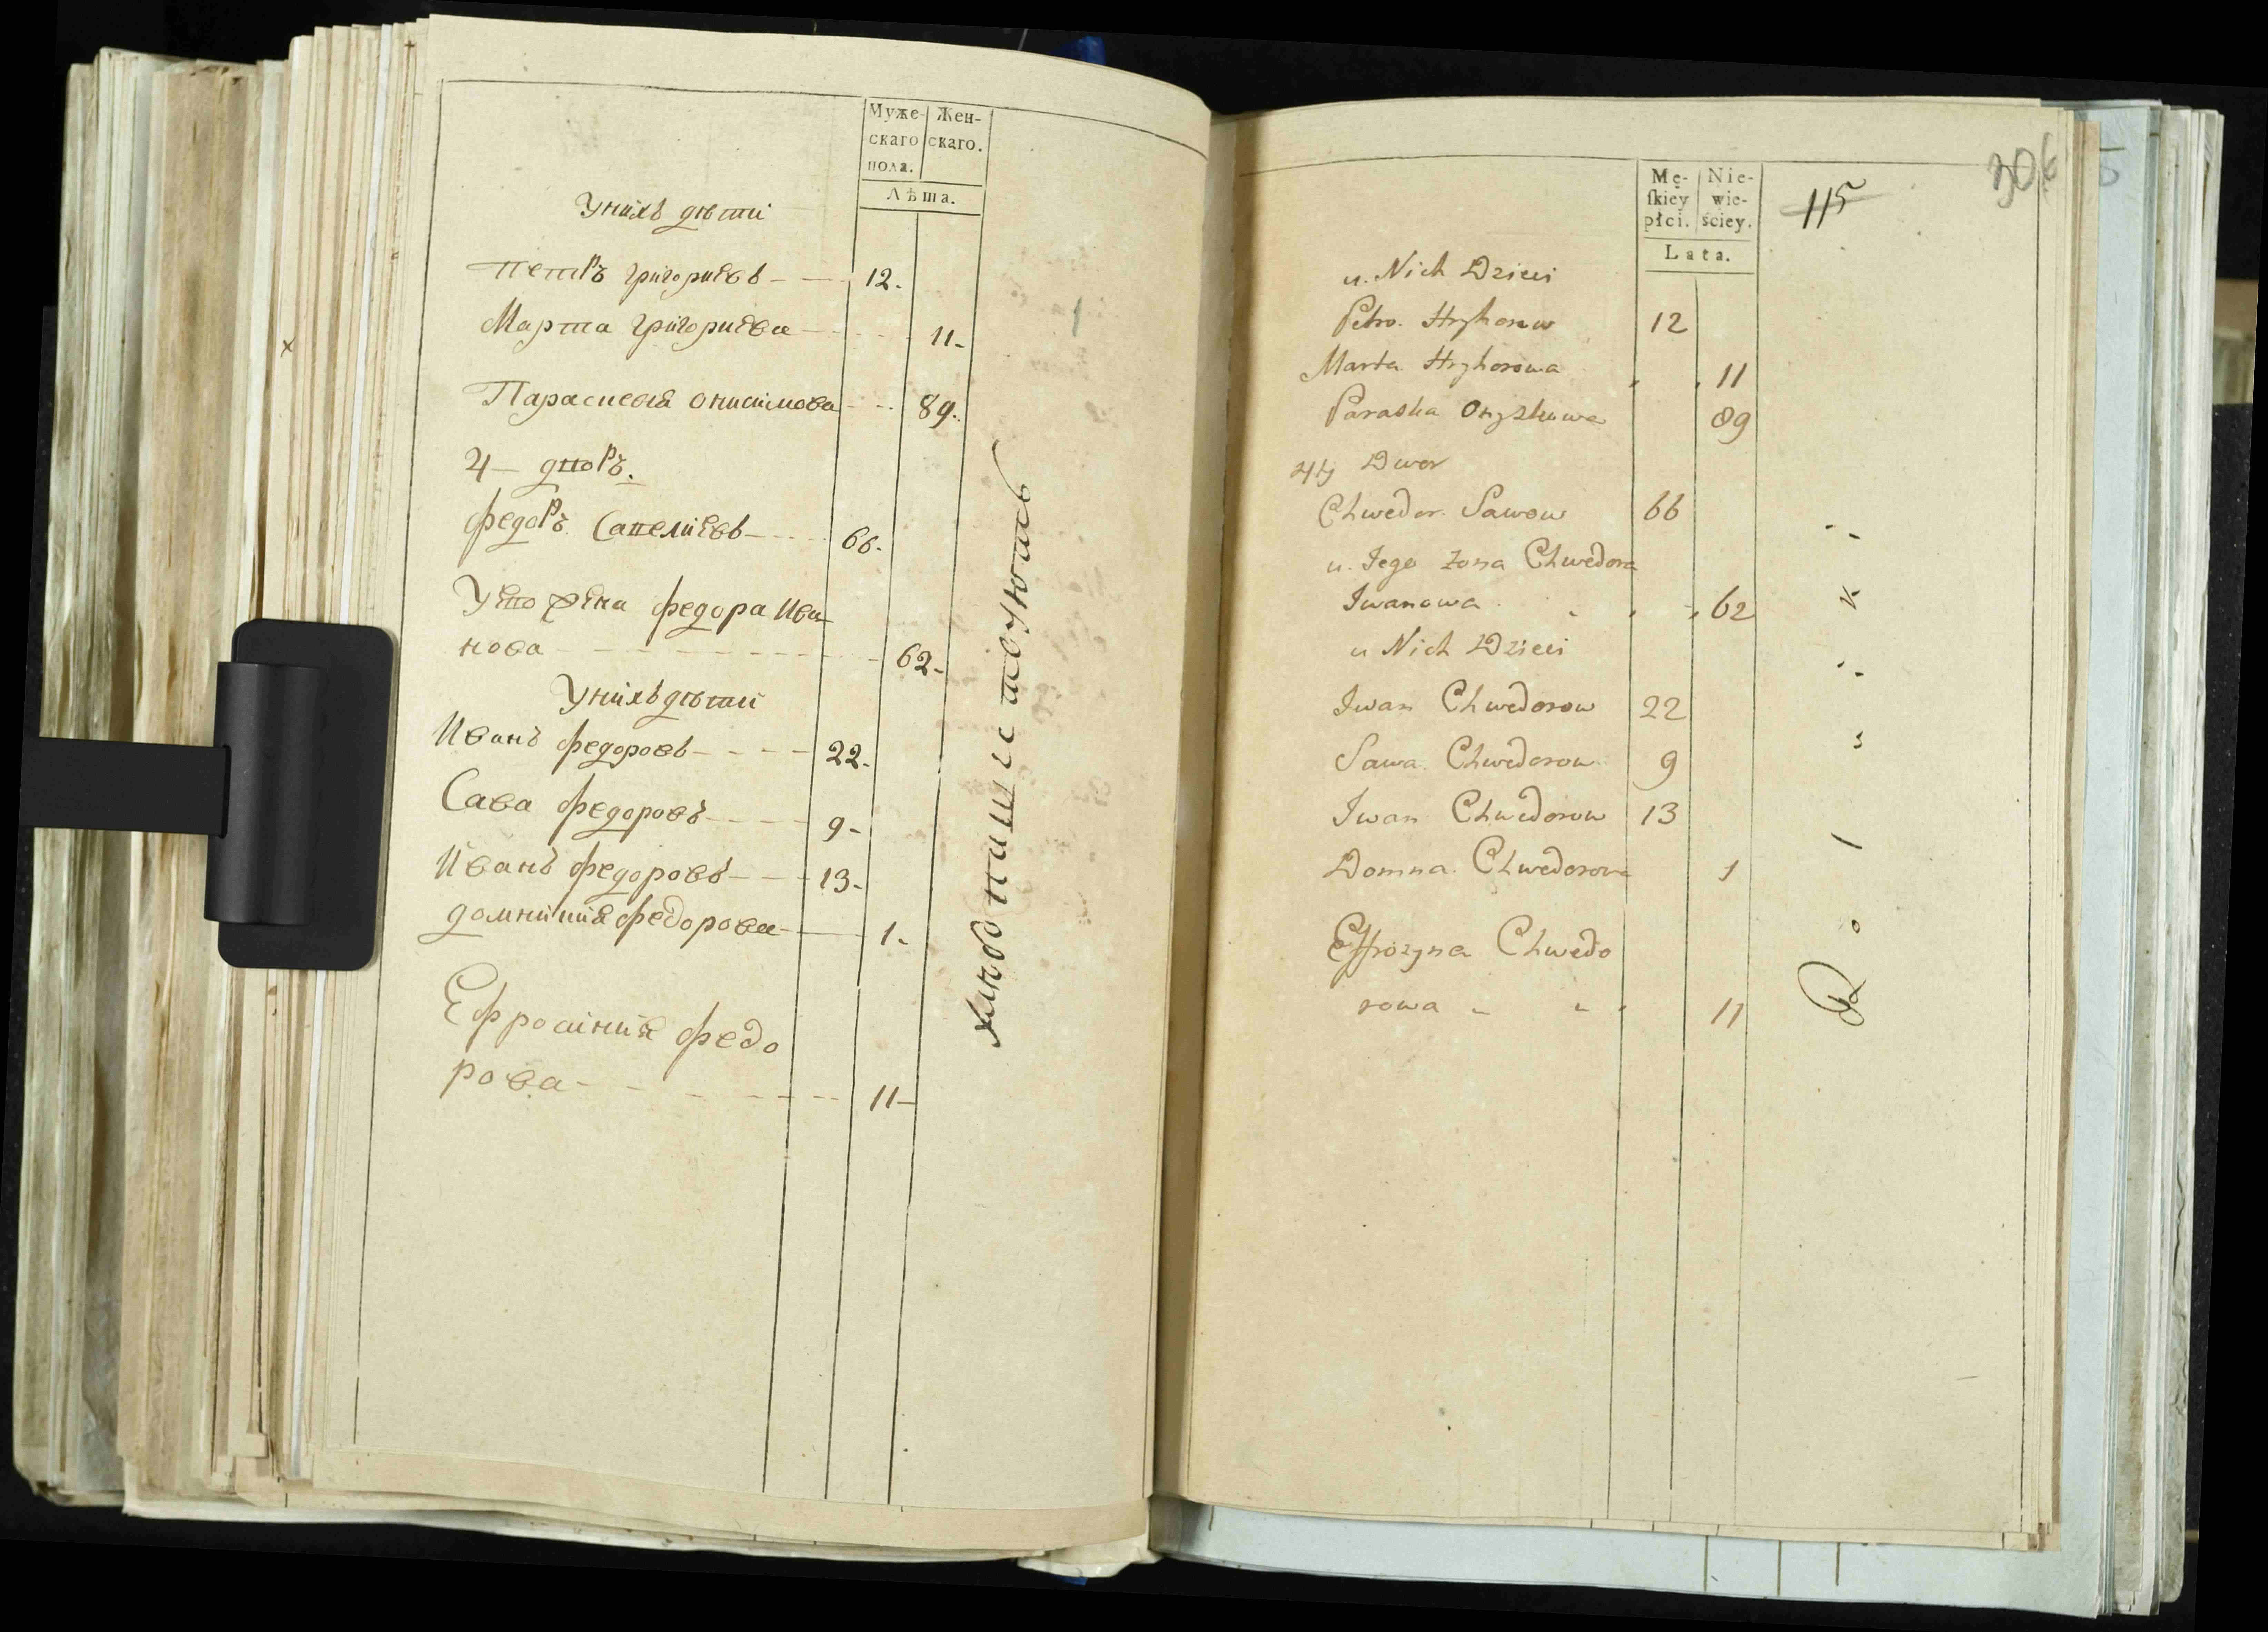 Муже-
скаго
пола.
Жен-
скаго.
Лѣта.
У нихъ дѣти
Петръ Григориевъ 12.
Марта Григориева 11
Параскевія Онисимова 89.
4 дворъ.
Федоръ Савелиевъ 66.
У ево жена Федора Ива
нова 62
У нихъ дѣти
Иванъ Федоровъ 22
Сава Федоровъ 9
Иванъ Федоровъ 13
Домникия Федорова 1
Ефросиния Федо
рова 11
30
115
Mę-
ſkiey
płci.
Nie-
wie-
ściey.
Lata.
u. Nich Dzieci
Petro. Hryhorow 12
Marta Hryhorowa 11
Paraska Onyskowa 89
4ty Dwor
Chwedor. Sawow 66
u. Jego żona Chwedora
Iwanowa 62
u Nich Dzieci
Iwan Chwedorow 22
Sawa Chwedorow 9
Iwan Chwedorow 13
Domna Chwedorowa 1
Effrozyna Chwedo
rowa 11